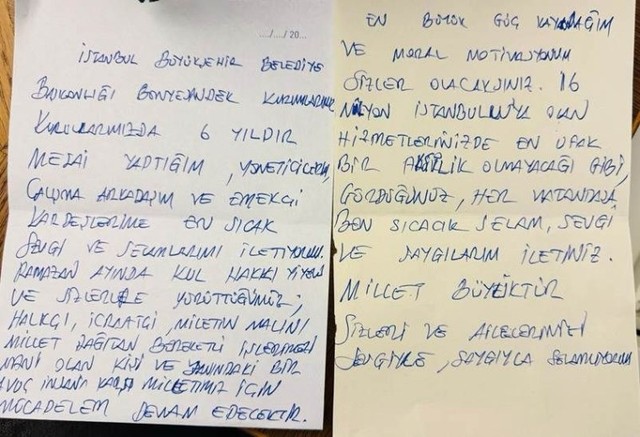 .../.../ 20...
İSTANBUL BÜYÜKŞEHİR BELEDİYE
BAŞKANLIĞI BÜNYESİNDEK KURUMLARIMIZ
KURULLARIMIZDA 6 YILDIR
MESAİ YAPTIĞIM, YÖNETİCİLERİM,
ÇALIŞMA ARKADAŞIM VE EMEKÇİ
KARDEŞLERİME EN SICAK
SEVGİ VE SELAMLARIMI İLETİYORUM.
RAMAZAN AYINDA KUL HAKKI YİYEN
VE SİZLERLE YÜRÜTTÜĞÜMÜZ;
HALKÇI, İCRAATÇI, MİLLETİN MALINI
MİLLET DAĞITAN BEREKETLİ İŞLERİMİZİ
MANİ OLAN KİŞİ VE YANINDAKİ BİR
AVUÇ İNSANA KARŞI MİLLETİMİZ İÇİN
MÜCADELEM DEVAM EDECEKTİR.
EN BÜYÜK GÜÇ KAYNAĞIM
VE MORAL MOTİVASYONUM
SİZLER OLACAKSINIZ. 16
MİLYON İSTANBULLUYA OLAN
HİZMETLERİNİZDE EN UFAK
BİR OLMAYACAĞI GİBİ,
GÖRDÜĞÜNÜZ, HER VATANDAŞA
BEN SICACIK SELAM, SEVGİ
VE SAYGILARIM İLETİNİZ.
MİLLET BÜYÜKTÜR
SİZLERİ VE AİLELERİNİZİ
SEVGİYLE, SAYGIYLA SELAMLIYORUM